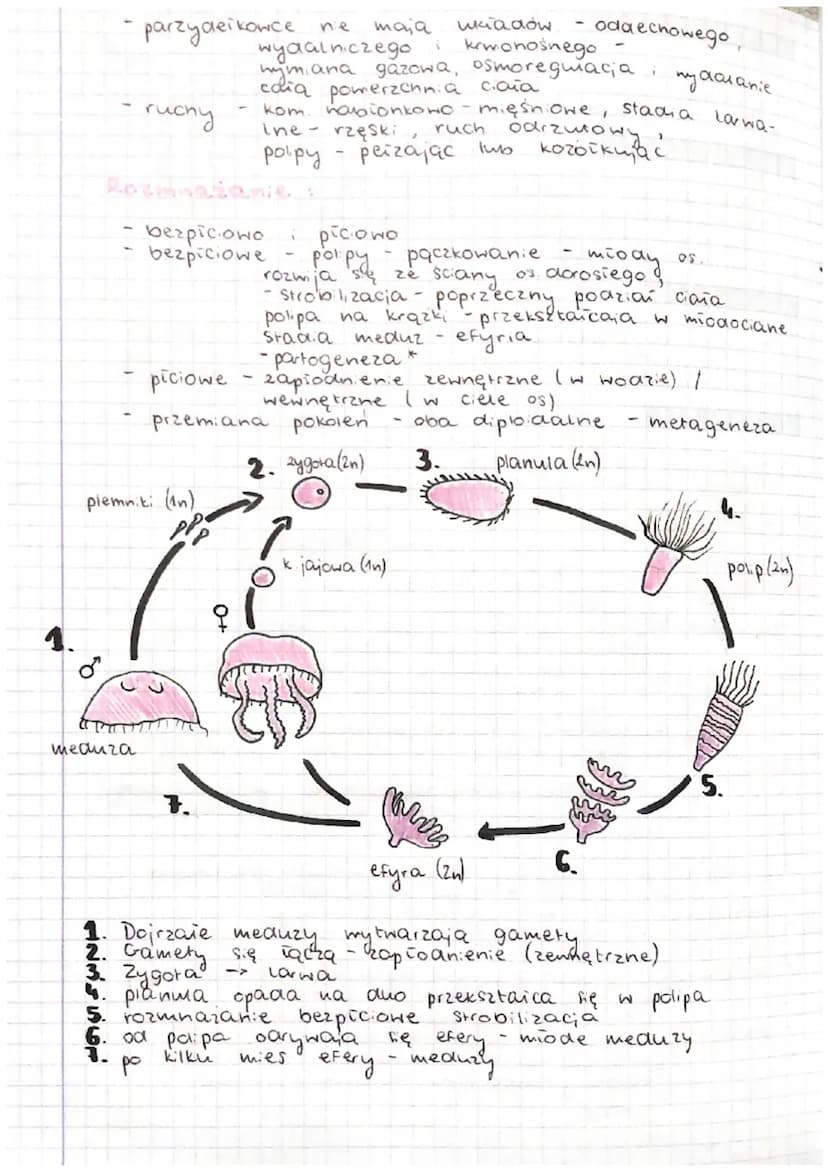 - parzydełkowce nie mają układów - oddechowego,
wydalniczego i krwonośnego -
wymiana gazowa, osmoregulacja i wydalanie
całą powierzchnią ciała
- ruchy - kom. nabłonkowo-mięśniowe, stadia larwa-
lne - rzęski, ruch odrzutowy,
polipy - pełzając lub koziołkując
Rozmnażanie:
- bezpłciowo i płciowo
- bezpłciowe - polipy - pączkowanie - młody os.
rozwija się ze ściany os. dorosłego,
- strobilizacja - poprzeczny podział ciała
polipa na krążki - przekształcają w młodociane
stadia meduz - efyria
- partogeneza*
- płciowe - zapłodnienie zewnętrzne (w wodzie) /
wewnętrzne (w ciele os)
- przemiana pokoleń - oba diploidalne - metageneza
2. zygota (2n) 3. planula (2n)
plemniki (1n)
4.
k. jajowa (1n)
polip (2n)
♀
1.
♂
meduza
5.
7.
6.
efyra (2n)
1. Dojrzałe meduzy wytwarzają gamety
2. Gamety się łączą - zapłodnienie (zewnętrzne)
3. Zygota -> larwa
4. planula opada na dno przekształca się w polipa
5. rozmnażanie bezpłciowe strobilizacja
6. od polipa odrywają się efery - młode meduzy
7. po kilku mies efery - meduzy